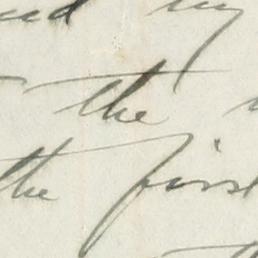 my
the
the first